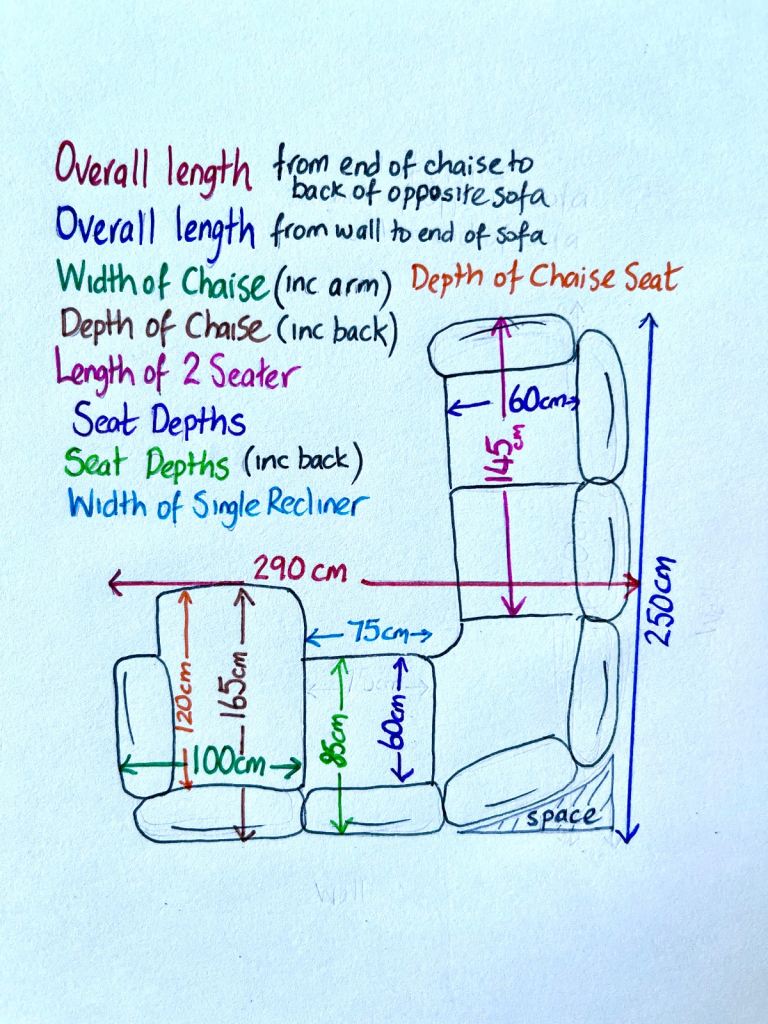 Overall length from end of chaise to
back of opposite sofa
Overall length from wall to end of sofa
Width of Chaise (inc arm) Depth of Chaise Seat
Depth of Chaise (inc back)
Length of 2 Seater
Seat Depths
Seat Depths (inc back)
Width of Single Recliner
60cm
145cm
290cm
250cm
75cm
120cm
165cm
85cm
60cm
100cm
space
Wall